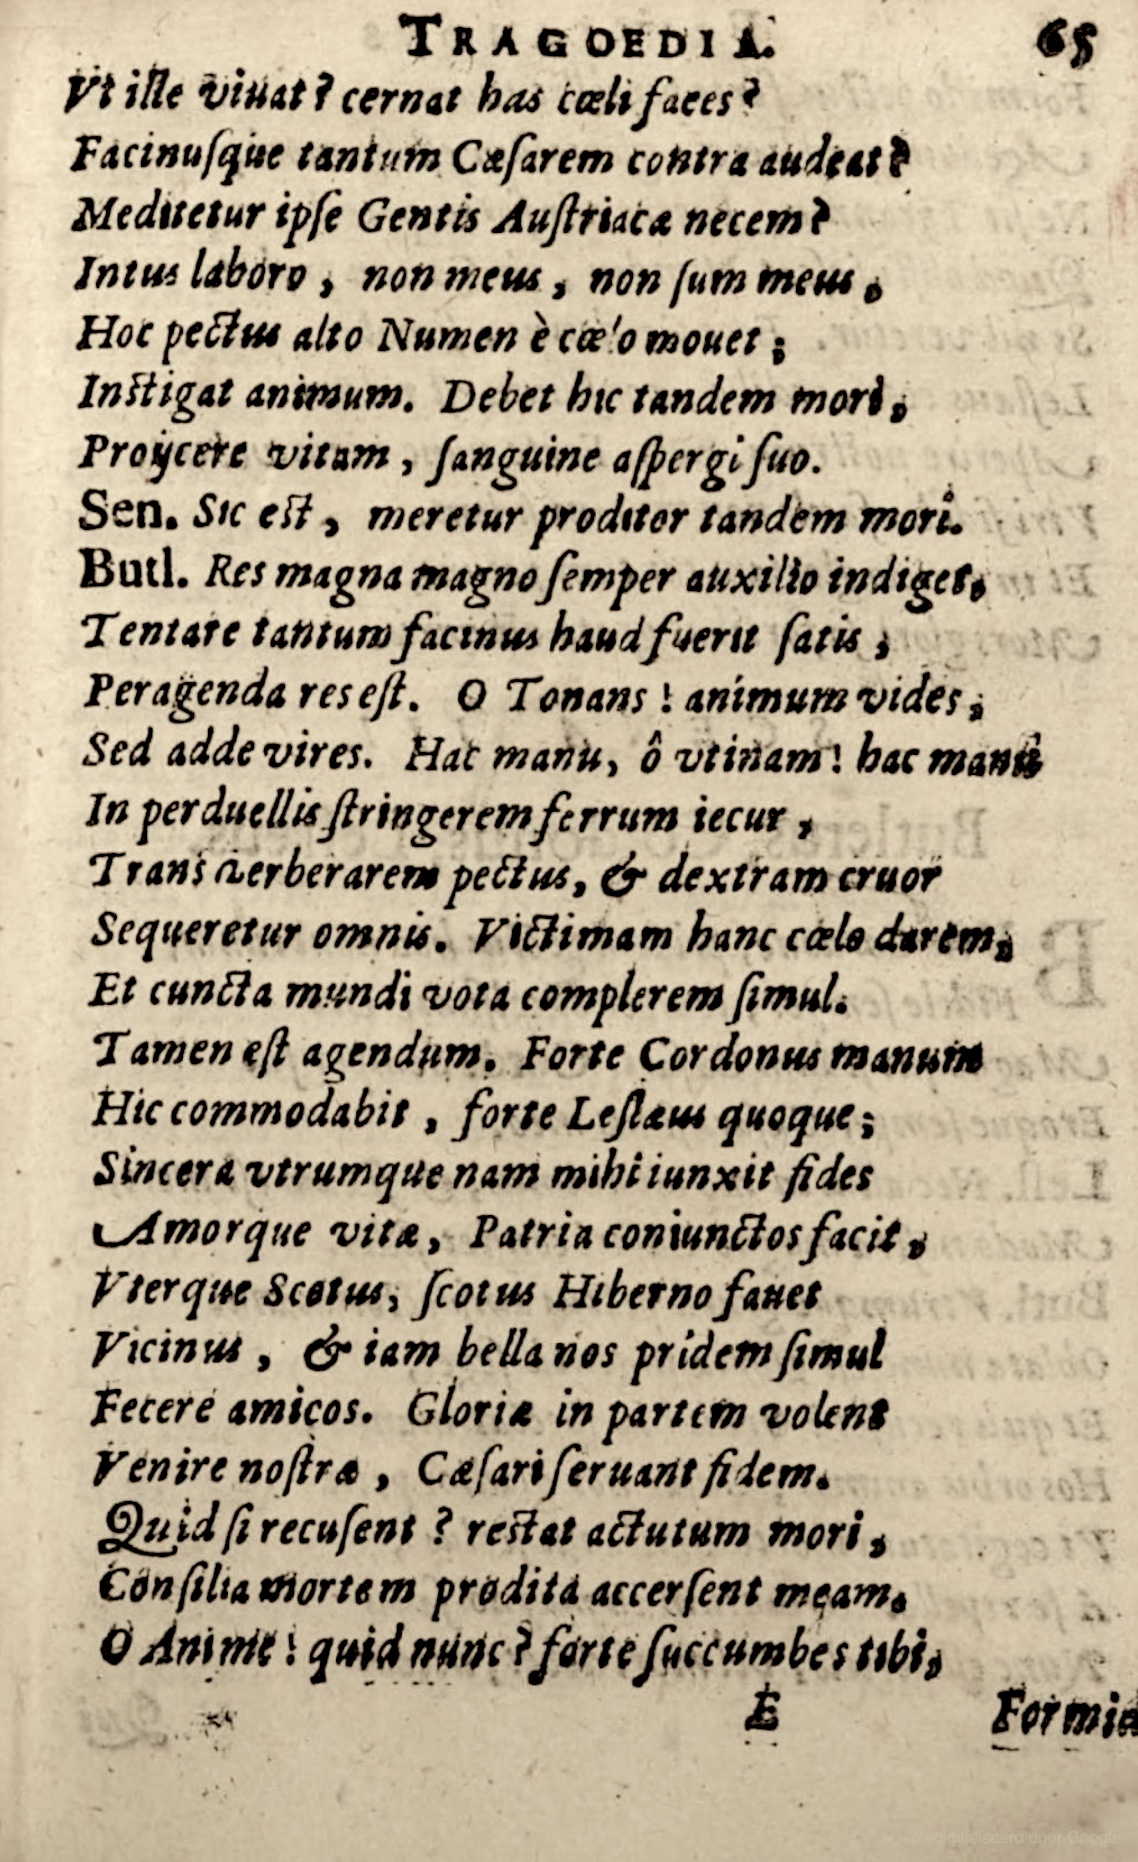 TRAGOEDIA. 65
Vt ille viuat? cernat has cœli faces?
Facinuſque tantum Cæſarem contra audeat?
Meditetur ipſe Gentis Auſtriacæ necem?
Intus laboro, non meus, non ſum meus,
Hoc pectus alto Numen è cœlo mouet;
Inſtigat animum. Debet hic tandem mori,
Proijcere vitam, ſanguine aſpergi ſuo.
Sen. Sic eſt, meretur proditor tandem mori.
Butl. Res magna magno ſemper auxilio indiget,
Tentare tantum facinus haud fuerit ſatis,
Peragenda res eſt. O Tonans! animum vides;
Sed adde vires. Hac manu, ô vtinam! hac manu
In perduellis ſtringerem ferrum iecur,
Trans verberarem pectus, & dextram cruor
Sequeretur omnis. Victimam hanc cœlo darem,
Et cuncta mundi vota complerem ſimul.
Tamen eſt agendum. Forte Cordonus manum
Hic commodabit, forte Leſlæus quoque;
Sincera vtrumque nam mihi iunxit fides
Amorque vitæ, Patria coniunctos facit,
Vterque Scotus, ſcotus Hiberno fauet
Vicinus, & iam bella nos pridem ſimul
Fecere amicos. Gloriæ in partem volent
Venire noſtræ, Cæſari ſeruant fidem.
Quid ſi recuſent? reſtat actutum mori,
Conſilia mortem prodita accerſent meam.
O Anime! quid nunc? forte ſuccumbes tibi,
E Formid